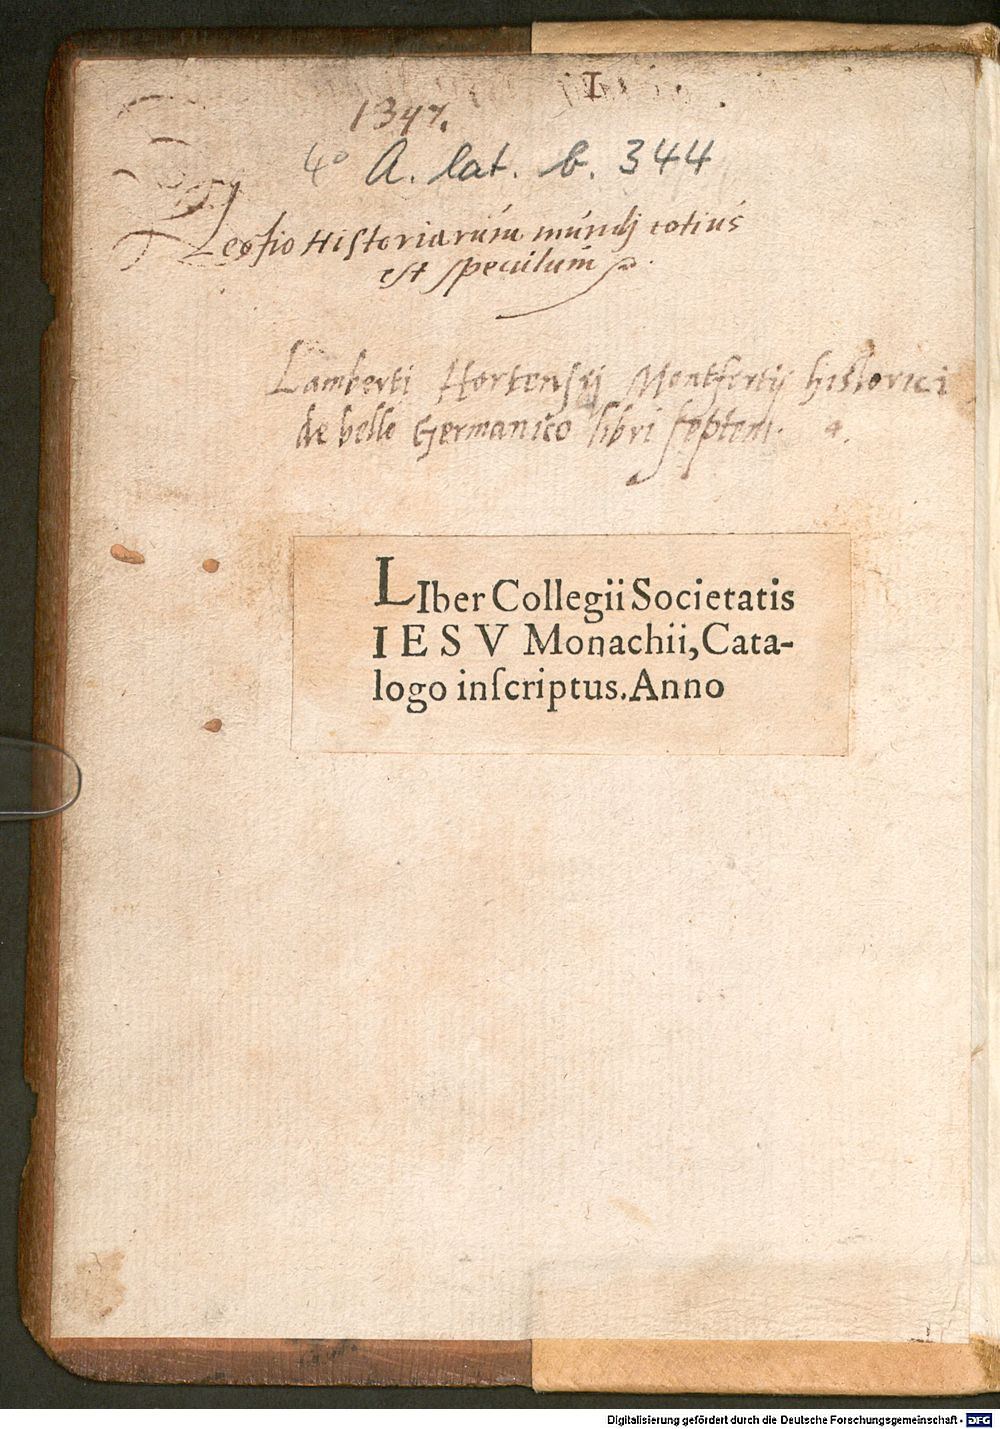 I
1347.
4° A. lat. b. 344
Lectio Historiarum mundj totius
est speculum
Lamberti Hortensij Montfortij historici
de bello Germanico libri septem. 4.
LIber Collegii Societatis
IESV Monachii, Cata-
logo inſcriptus. Anno
Digitalisierung gefördert durch die Deutsche Forschungsgemeinschaft - DFG